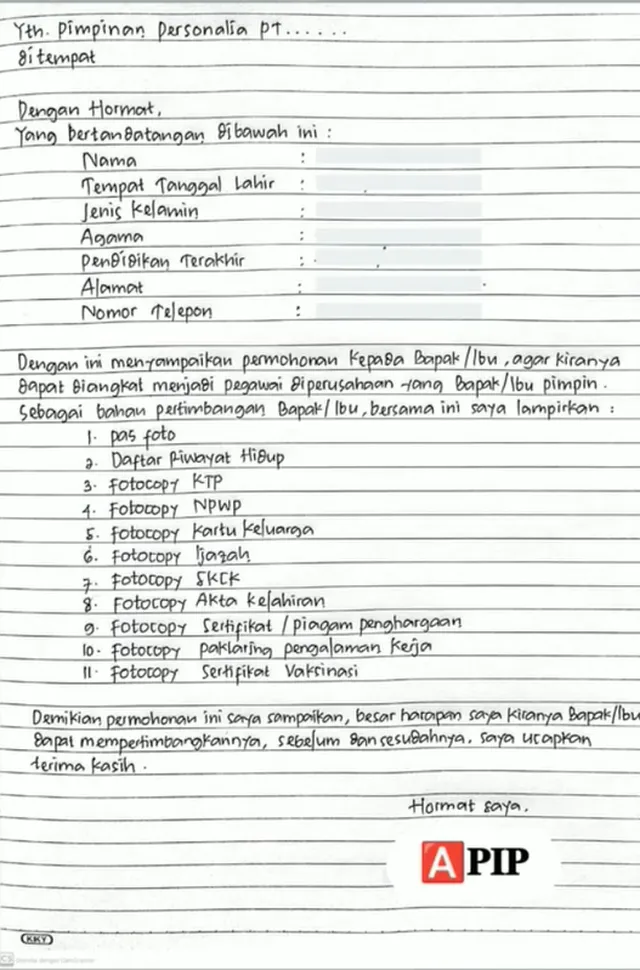 Yth. Pimpinan Personalia PT......
ditempat
Dengan Hormat,
Yang bertandatangan dibawah ini :
Nama :
Tempat Tanggal Lahir :
Jenis Kelamin :
Agama :
Pendidikan Terakhir :
Alamat :
Nomor Telepon :
Dengan ini menyampaikan permohonan kepada Bapak/Ibu, agar kiranya
dapat diangkat menjadi pegawai diperusahaan yang Bapak/Ibu pimpin.
Sebagai bahan pertimbangan Bapak/Ibu, bersama ini saya lampirkan :
1. Pas foto
2. Daftar Riwayat Hidup
3. Fotocopy KTP
4. Fotocopy NPWP
5. Fotocopy Kartu Keluarga
6. Fotocopy Ijazah
7. Fotocopy SKCK
8. Fotocopy Akta Kelahiran
9. Fotocopy Sertifikat / piagam penghargaan
10. Fotocopy paklaring pengalaman Kerja
11. Fotocopy Sertifikat Vaksinasi
Demikian permohonan ini saya sampaikan, besar harapan saya kiranya Bapak/Ibu
dapat mempertimbangkannya, sebelum dan sesudahnya. saya ucapkan
terima kasih.
Hormat saya.
A PIP
KKY